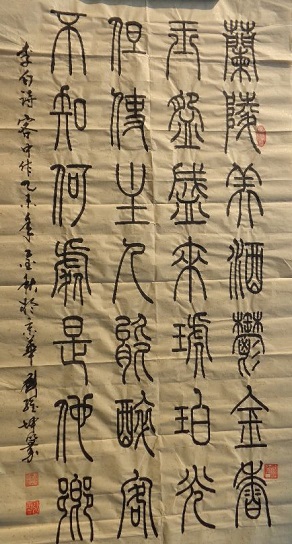 蘭陵美酒鬱金香
玉盌盛來琥珀光
但使主人能醉客
不知何處是他鄉
李白诗客中作乙未年